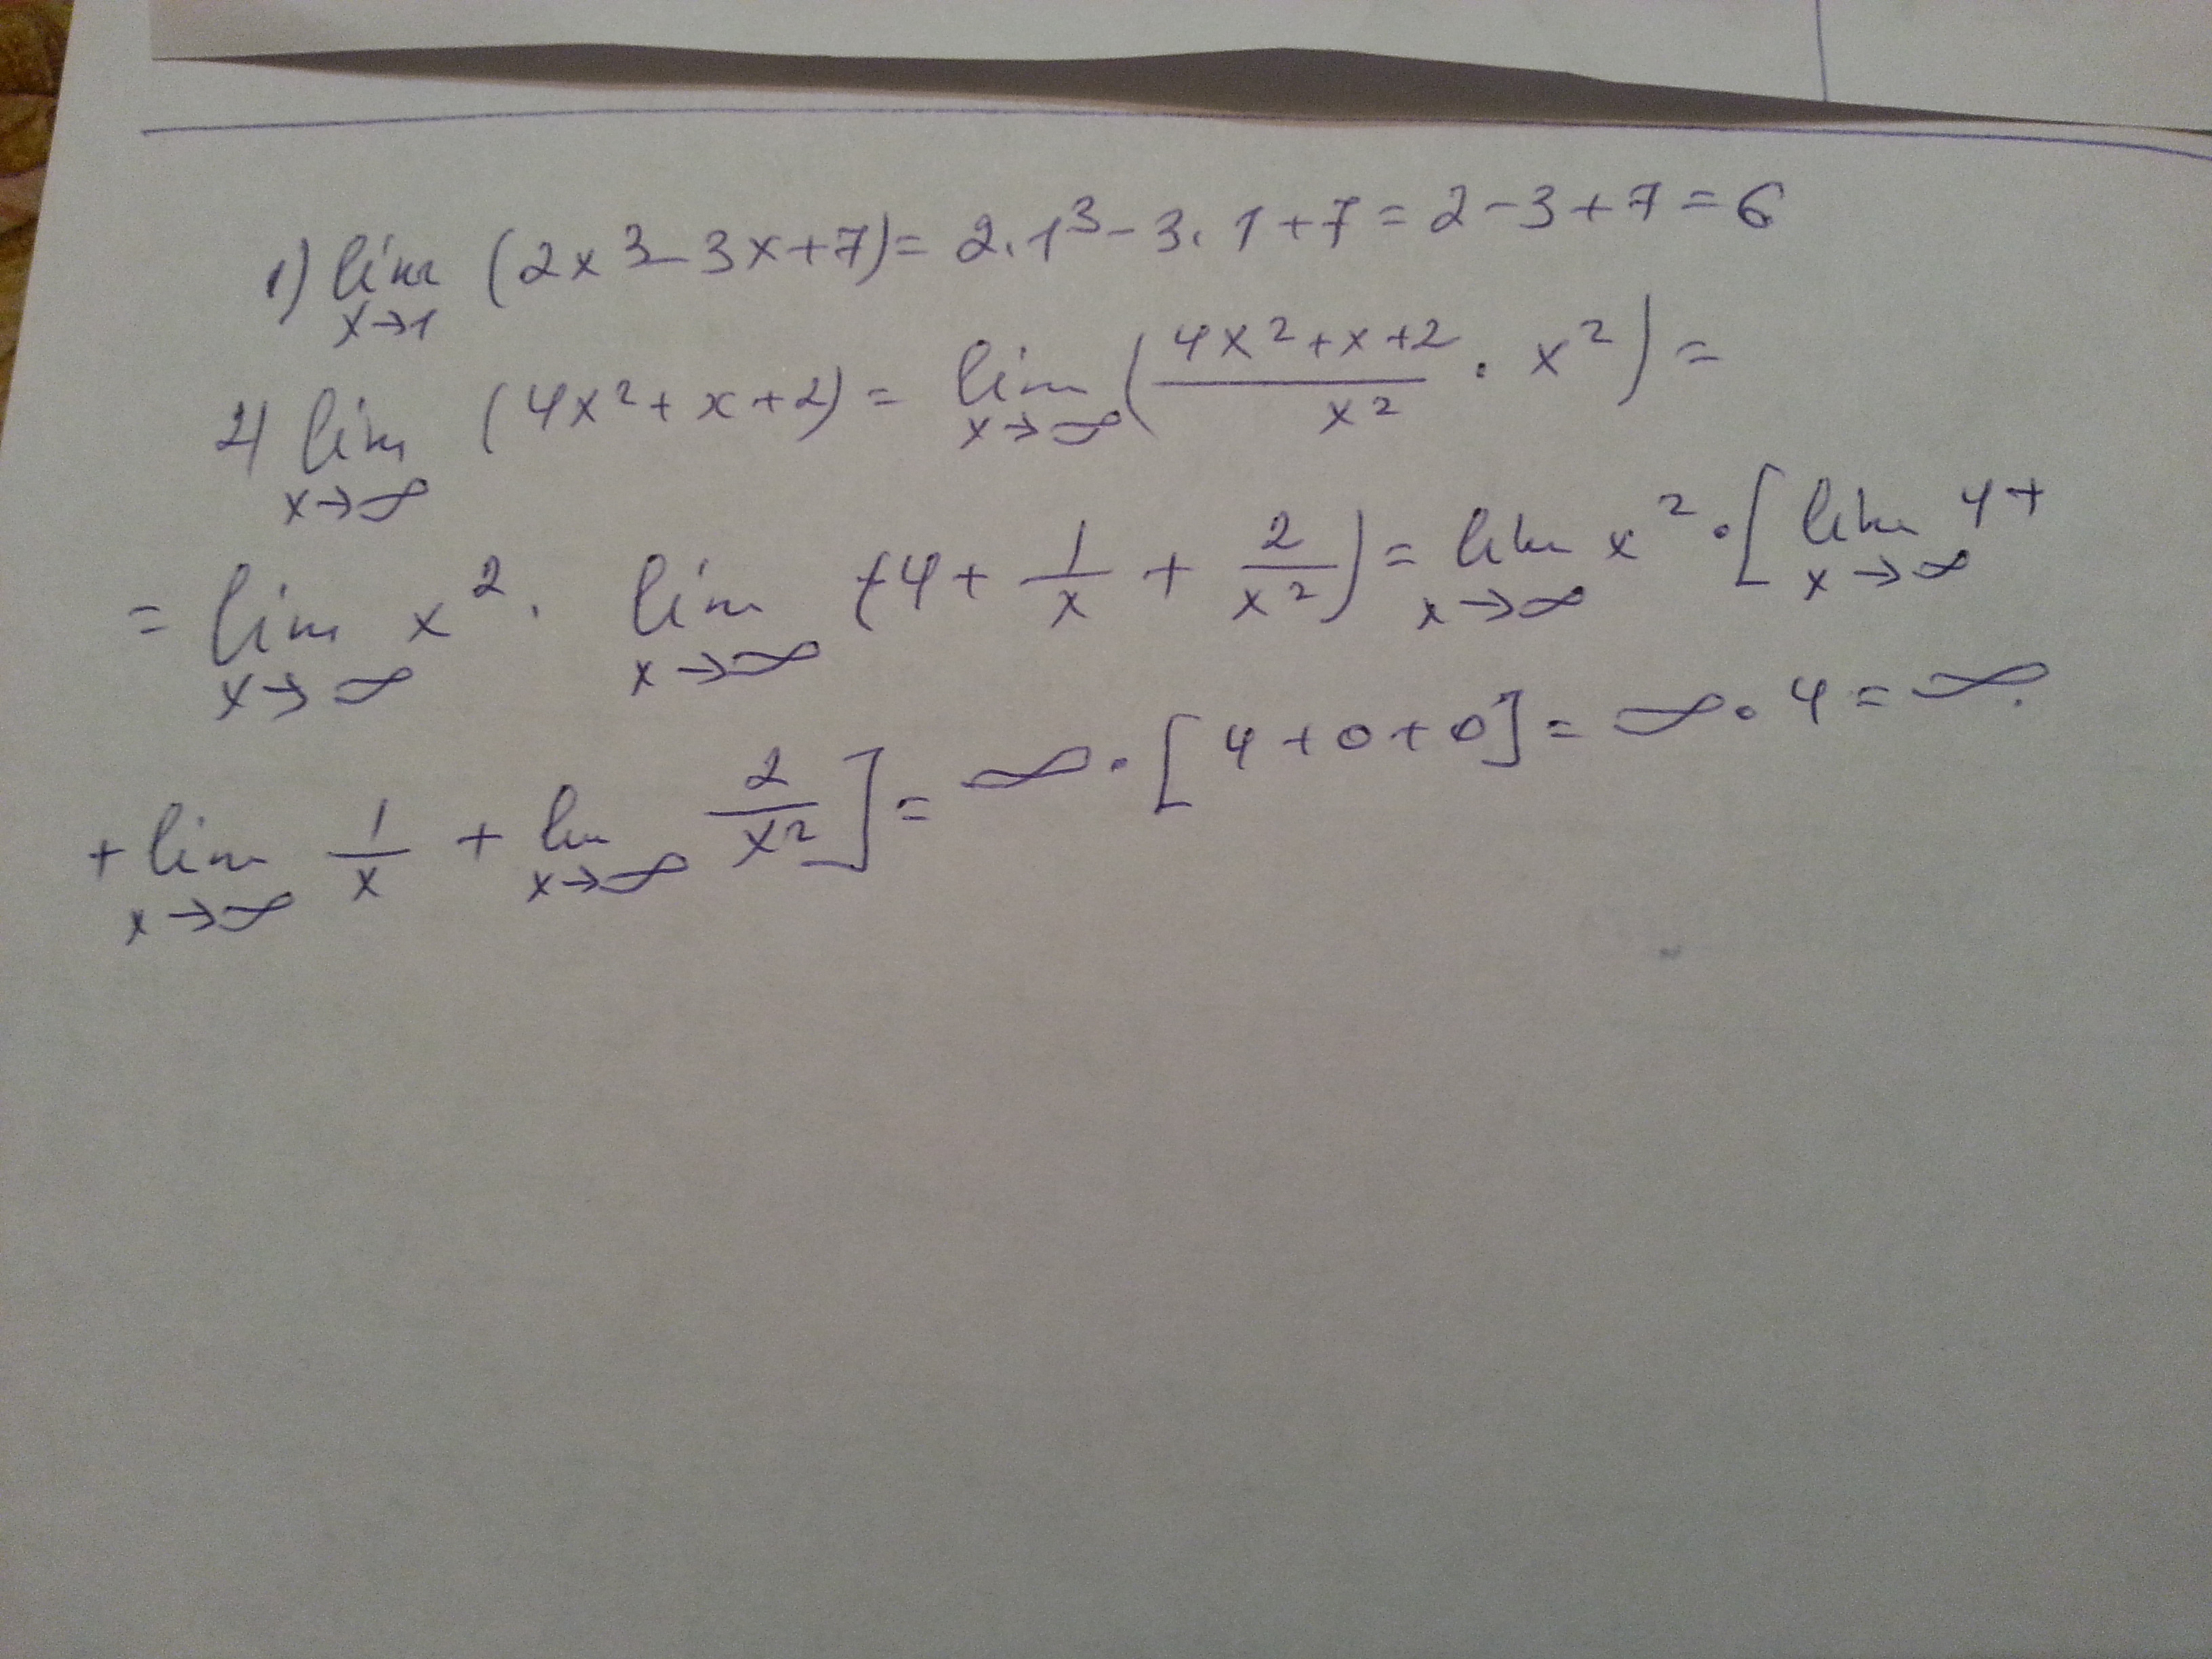 1) lim x→1 (2x³-3x+7)= 2·1³-3·1+7=2-3+7=6
2) lim x→∞ (4x²+x+2)= lim x→∞ ((4x²+x+2)/x² · x²)=
= lim x→∞ x² · lim x→∞ (4+1/x+2/x²)= lim x→∞ x²·[lim x→∞ 4+
+lim x→∞ 1/x + lim x→∞ 2/x²]=∞·[4+0+0]=∞·4=∞.